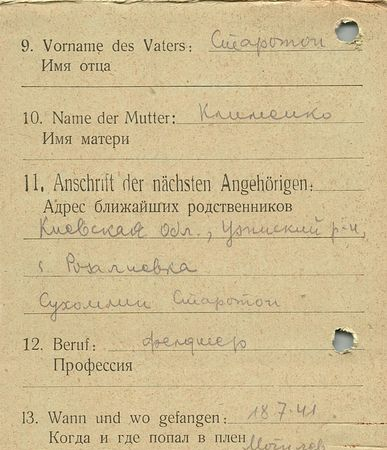 9. Vorname des Vaters: Старотон
Имя отца
10. Name der Mutter: Клименко
Имя матери
11. Anschrift der nächsten Angehörigen:
Адрес ближайших родственников
Киевская обл., р-н,
Розалиевка
Сухомлин Старотон
12. Beruf: фельдшер
Профессия
13. Wann und wo gefangen: 18 7.41
Когда и где попал в плен Могилев